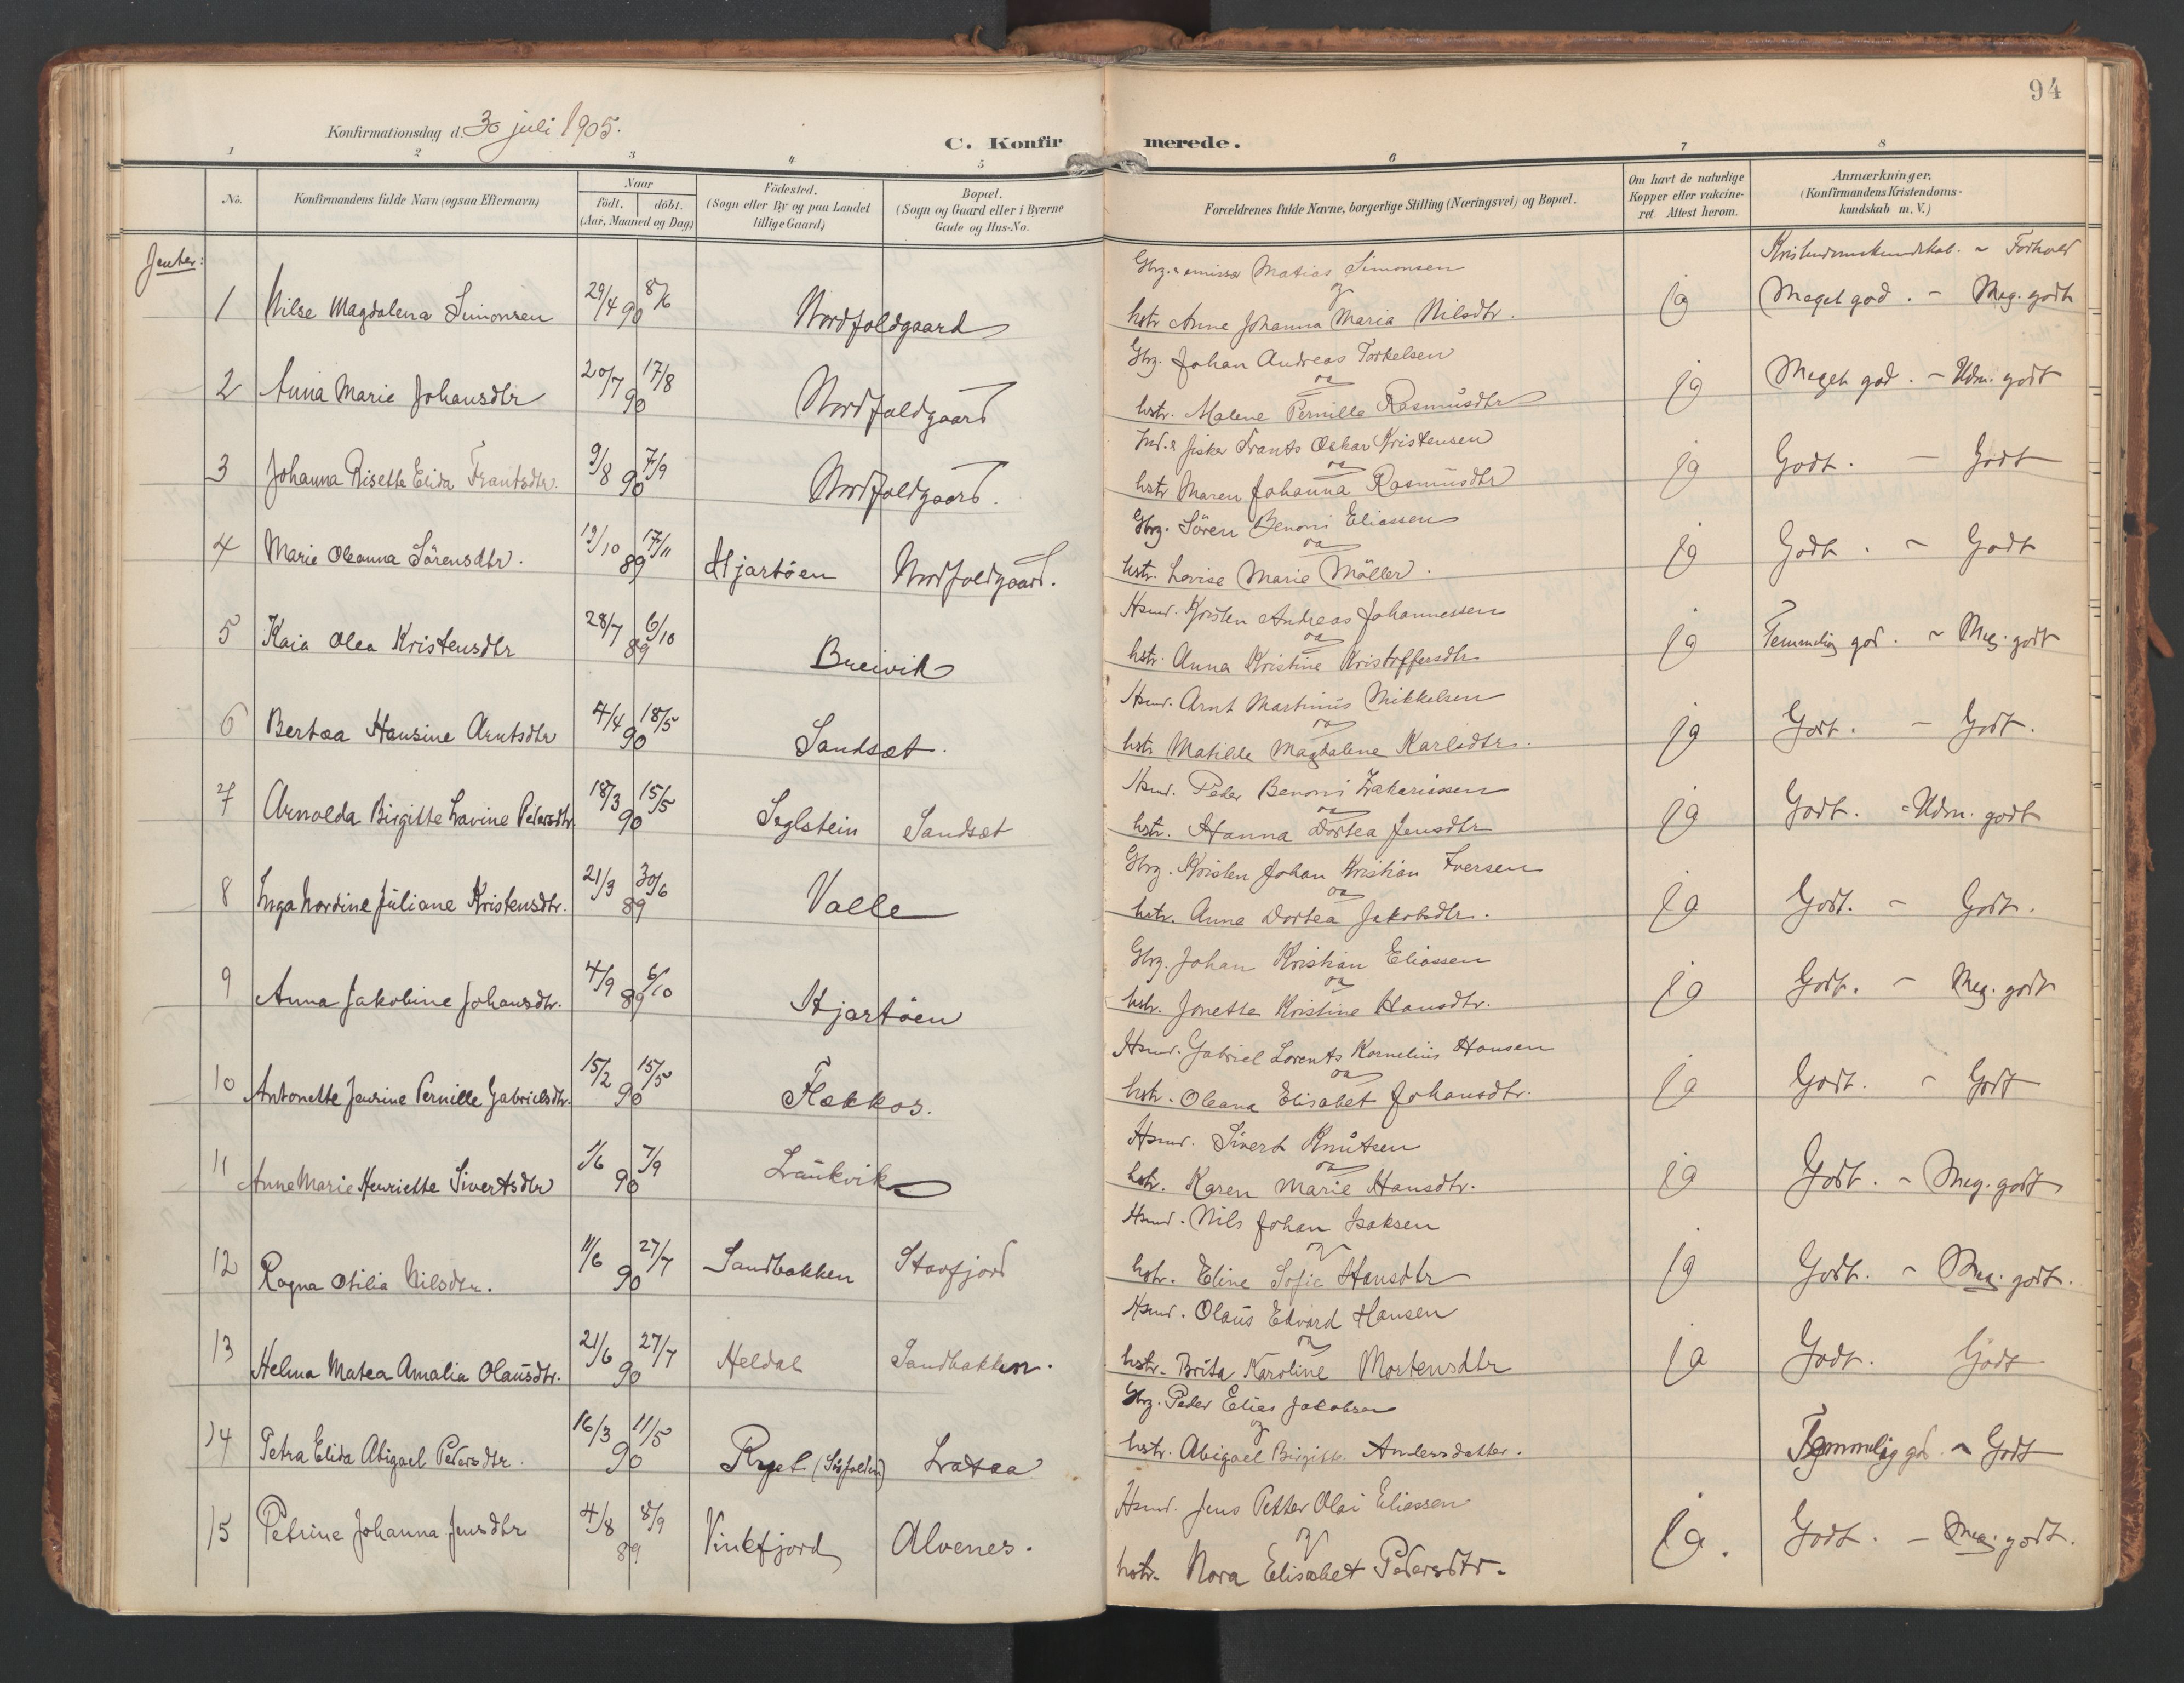 94
Konfirmationsdag d. 30 juli 1905.
C. Konfirmerede.
1 2 3 4 5 6 7 8
No.
Konfirmandens fulde Navn (ogsaa Efternavn)
Naar
født. døbt.
(Aar, Maaned og Dag)
Födested.
(Sogn eller By og paa Landet
tillige Gaard)
Bopæl.
(Sogn og Gaard eller i Byerne
Gade og Hus-No.
Forældrenes fulde Navne, borgerlige Stilling (Næringsvei) og Bopæl.
Om havt de naturlige
Kopper eller vakcine-
ret. Attest herom.
Anmærkninger.
(Konfirmandens Kristendoms-
kundskab m. V.)
Jenter:
Kristendomskundskab. ~ Forhold
Gbrg. & emissær Matias Simonsen
1 Nilse Magdalena Simonsen 29/4 8/6 90 Nordfoldgaard og
hstr Anne Johanna Maria Nilsdtr. ja Meget god. - Meg. godt
Gbrg. Johan Andreas Torkelsen
2 Anna Marie Johansdtr 20/7 17/8 90 Nordfoldgaard og
hstr. Malene Pernille Rasmusdtr ja Meget god. - Udm. godt
Ind. & fisker Frants Oskar Kristensen
3 Johanna Risette Elida Frantsdtr. 9/8 7/9 90 Nordfoldgaard. og
hstr Maren Johanna Rasmusdtr ja Godt. - Godt
Gbrg. Sören Benoni Eliassen
4 Marie Oleanna Sörensdtr. 19/10 17/11 89 Hjartöen Nordfoldgaard. og
hstr. Lovise Marie Möller. ja Godt. ~ Godt
Hsmd. Kristen Andreas Johannessen
5 Kaia Olea Kristensdtr 28/7 6/10 89 Breivik og
hstr. Anna Kristine Kristoffersdtr ja Temmelig god. ~ Meg. godt
Hsmd. Arnt Martinus Mikkelsen
6 Bertea Hansine Arntsdtr 7/4 18/5 90 Sandsæt. og
hstr Matilde Magdalene Karlsdtr. ja Godt. - Godt.
Hsmd. Peder Benoni Zakariassen
7 Arnolda Birgitte Lavine Pedersdtr. 18/3 15/5 90 Seglstein Sandsæt og
hstr. Hanna Dortea Jensdtr ja Godt. - Udm. godt
Gbrg. Kristen Johan Kristian Iversen
8 Inga Nordine Juliane Kristensdtr. 21/3 30/6 89 Valle og
hstr. Anne Dortea Jakobsdtr. ja Godt. - Godt.
Gbrg. Johan Kristian Eliassen
9 Anna Jakobine Johansdtr. 4/9 6/10 89 Hjartöen og
hstr. Jonette Kristine Hansdtr. ja Godt. - Meg. godt
Hsmd. Gabriel Lorents Kornelius Hansen
10 Antonette Jensine Pernille Gabrielsdtr. 15/2 15/5 90 Flækkos. og
hstr. Oleana Elisabet Johansdtr. ja Godt. ~ Godt
Hsmd. Sivert Knutsen
11 Anne Marie Henriette Sivertsdtr 1/6 7/9 90 Laukvik og
hstr. Karen Marie Hansdtr. ja Godt. ~ Meg. godt
Hsmd. Nils Johan Isaksen
12 Ragna Otilia Nilsdtr. 11/6 27/7 90 Sandbakken Storfjord og
hstr. Eline Sofie Hansdtr ja Godt. ~ Meg. godt.
Hsmd. Olaus Edvard Hansen
13 Helma Matea Amalia Olausdtr. 21/6 27/7 90 Heldal Sandbakken. og
hstr. Brita Karoline Mortensdtr ja Godt. Godt
Gbrg. Peder Elias Jakobsen
14 Petra Elida Abigael Pedersdtr. 16/3 11/5 90 Ryet (Sörfolden) Lataa og
hstr. Abigael Birgitte Andersdatter. Temmelig god. ~ Godt
Hsmd. Jens Petter Olai Eliassen
15 Petrine Johanna Jensdtr 4/8 8/9 89 Vinkfjord Alvenes. og
hstr. Nora Elisabet Pedersdtr. ja. Godt. - Meg. godt.